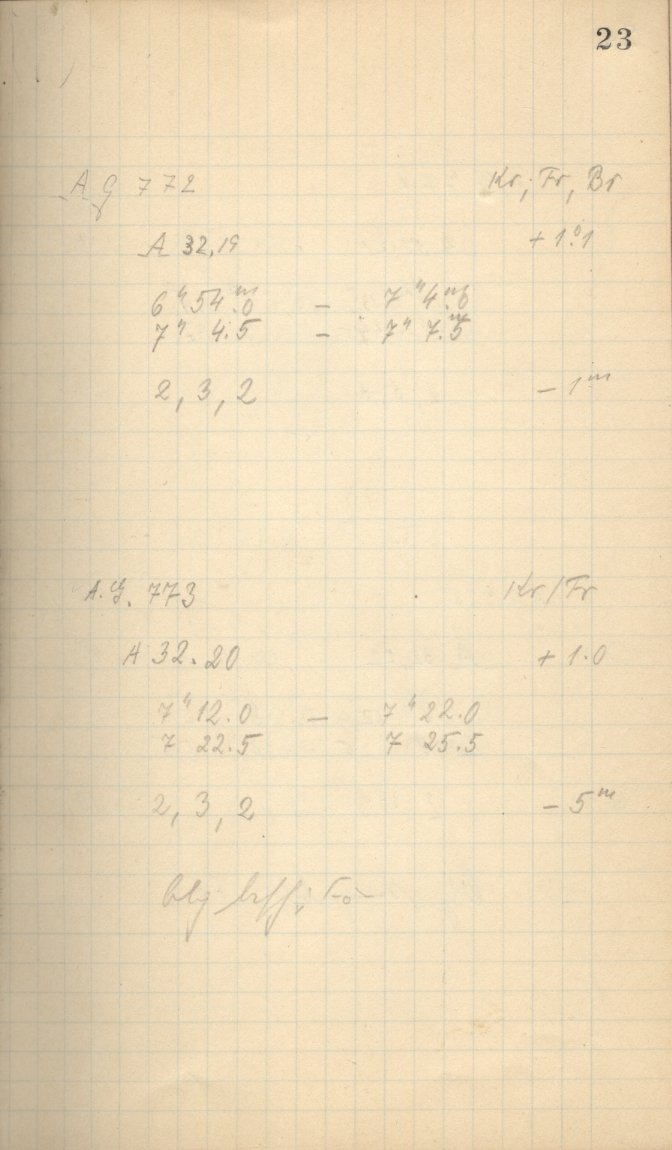 23
A G 772 Kr, Fr, Br
A 32,19 + 1°.1
6ʰ 54ᵐ.0 – 7ʰ 4ᵐ.0
7ʰ 4.5 – 7ʰ 7ᵐ.5
2, 3, 2 – 1ᵐ
A.G. 773 Kr/Fr
A 32.20 + 1.0
7ʰ 12.0 – 7ʰ 22.0
7 22.5 7 25.5
2, 3, 2 – 5ᵐ